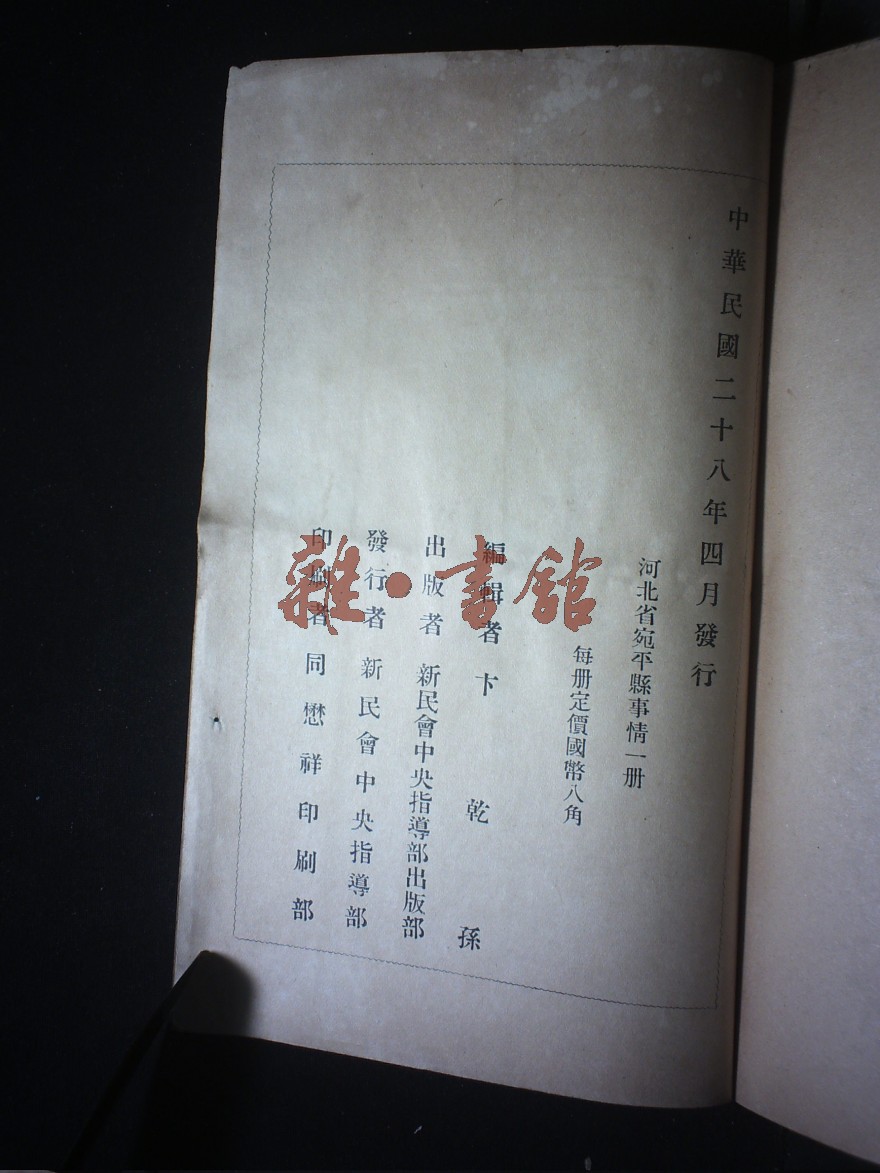 中華民國二十八年四月發行
河北省宛平縣事情一册
每册定價國幣八角
編輯者 卞乾孫
出版者 新民會中央指導部出版部
發行者 新民會中央指導部
印刷者 同懋祥印刷部
雜·書館